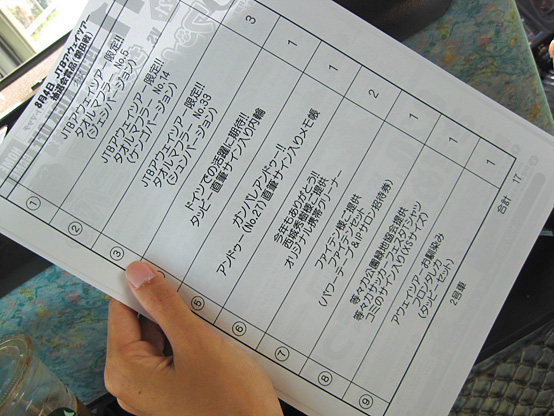 8月4日 JTBアウェイツアー
抽選会賞品(磐田戦)
① JTBアウェイツアー 限定!!
タオルマフラー No.5
(ジェシバージョン)
② JTBアウェイツアー 限定!!
タオルマフラー No.14
(ケンゴバージョン)
③ JTBアウェイツアー 限定!!
タオルマフラー No.33
(ジュンバージョン) 3
ドイツでの活躍に期待!!
タッピー直筆サイン入り内輪 1
⑤ ガンバレアンドゥー!!
アンドゥー(No.27)直筆サイン入りメモ帳 1
⑥ 今年もありがとう!!
西城秀樹様ご提供
オリジナル携帯クリーナー 2
⑦ ファイテン様ご提供
ファイテンセット
(パワーテープ&iPサロン招待券) 1
⑧ 等々力公園緑地協会提供
等々力サッカーフェスタTシャツ
コミのサイン入り(XSサイズ) 1
⑨ アウェイツアーお馴染み
フロンタレック
(タッピーセット) 1
合計 17
2号車